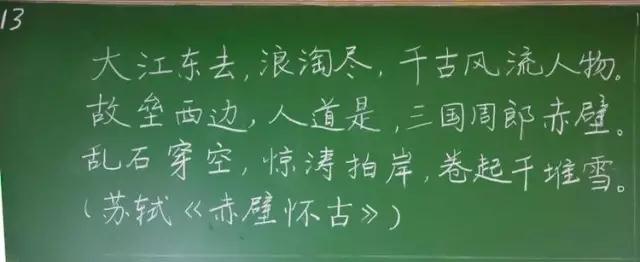 13
大江东去,浪淘尽,千古风流人物。
故垒西边,人道是,三国周郎赤壁。
乱石穿空,惊涛拍岸,卷起千堆雪。
(苏轼《赤壁怀古》)